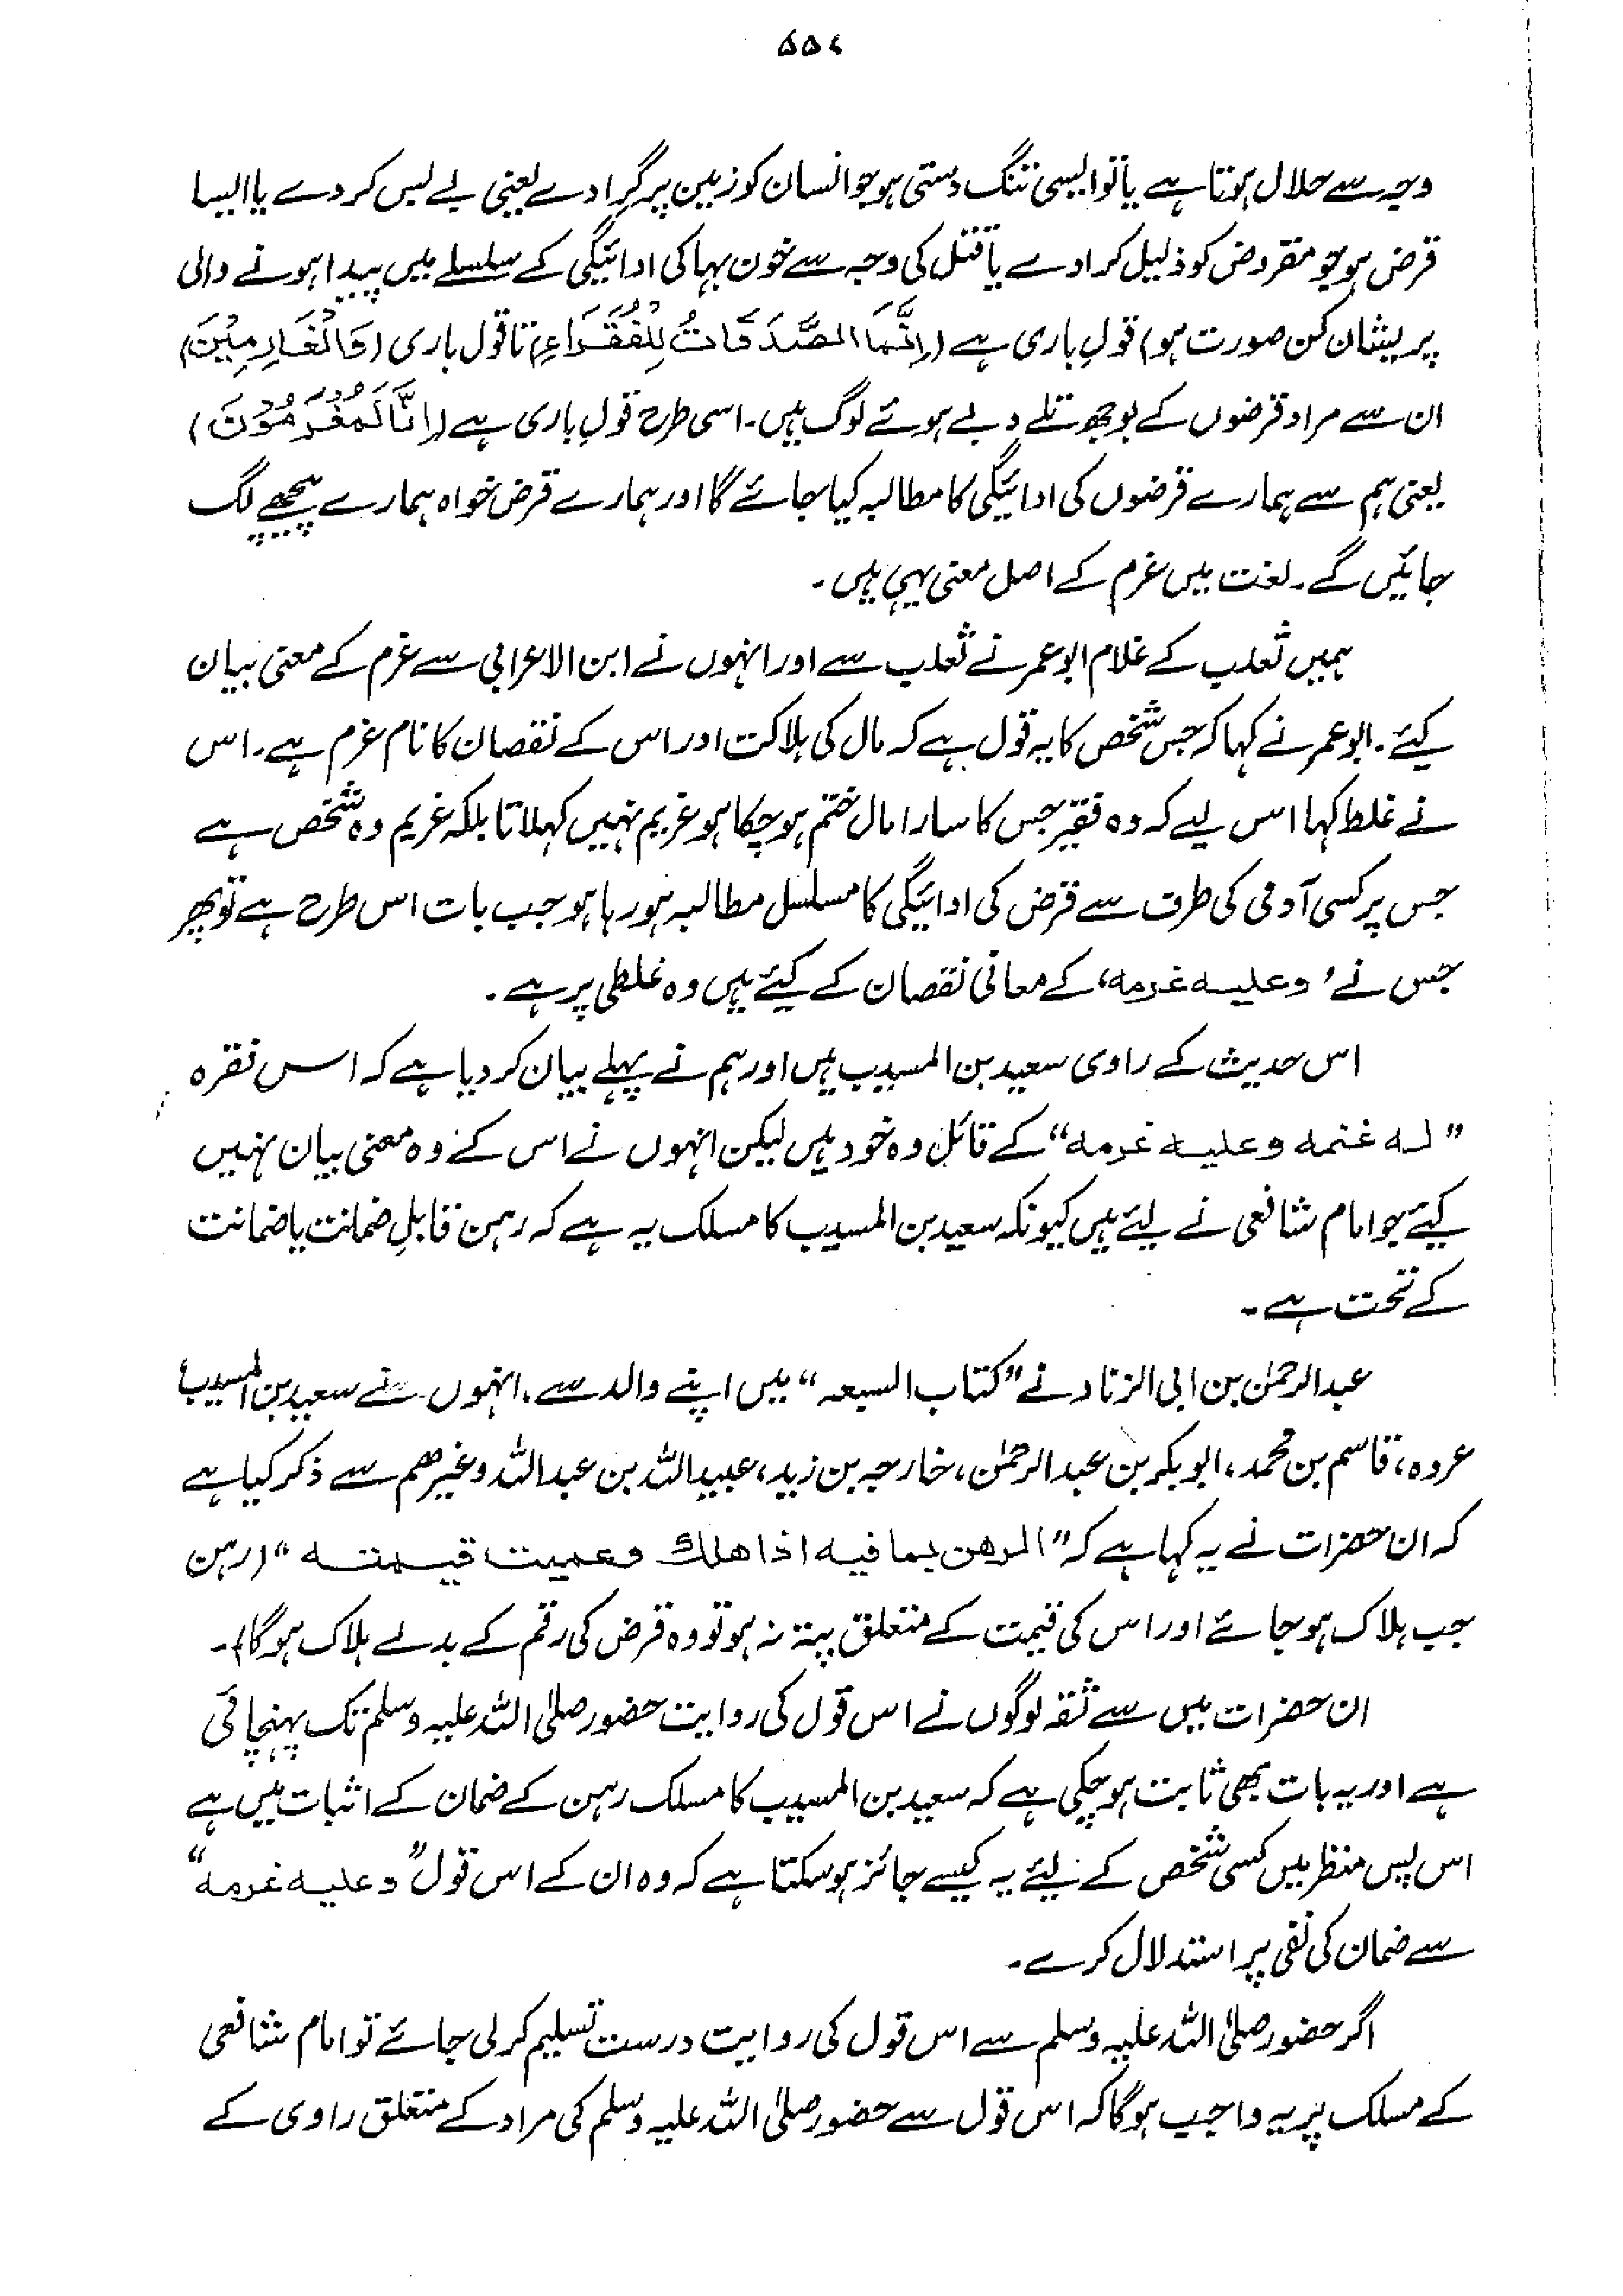 ۵۵۷
وجہ سے حلال ہوتا ہے یا تو ایسی تنگ دستی ہو جو انسان کو زمین پر گرا دے یعنی بے بس کر دے یا ایسا
قرض ہو جو مقروض کو ذلیل کرا دے یا قتل کی وجہ سے خون بہا کی ادائیگی کے سلسلے میں پیدا ہونے والی
پریشان کن صورت ہو) قولِ باری ہے (اِنَّمَا الصَّدَقَاتُ لِلْفُقَرَاءِ) تا قول باری (وَالْغَارِمِيْنَ)
ان سے مراد قرضوں کے بوجھ تلے دبے ہوئے لوگ ہیں۔ اسی طرح قولِ باری ہے (اِنَّا لَمُغْرَمُوْنَ)
یعنی ہم سے ہمارے قرضوں کی ادائیگی کا مطالبہ کیا جائے گا اور ہمارے قرض خواہ ہمارے پیچھے لگ
جائیں گے۔ لغت میں غرم کے اصل معنی یہی ہیں۔
ہمیں ثعلب کے غلام ابو عمر نے ثعلب سے اور انہوں نے ابن الاعرابی سے غرم کے معنی بیان
کیئے۔ ابو عمر نے کہا کہ جس شخص کا یہ قول ہے کہ مال کی ہلاکت اور اس کے نقصان کا نام غرم ہے۔ اس
نے غلط کہا اس لیے کہ وہ فقیر جس کا سارا مال ختم ہو چکا ہو غریم نہیں کہلاتا بلکہ غریم وہ شخص ہے
جس پر کسی آدمی کی طرف سے قرض کی ادائیگی کا مسلسل مطالبہ ہو رہا ہو جب بات اس طرح ہے تو پھر
جس نے ’وعلیہ غرمہ‘ کے معانی نقصان کے کیئے ہیں وہ غلطی پر ہے۔
اس حدیث کے راوی سعید بن المسیب ہیں اور ہم نے پہلے بیان کر دیا ہے کہ اس فقرہ
”لہ غنمہ وعلیہ غرمہ“ کے قائل وہ خود ہیں لیکن انہوں نے اس کے وہ معنی بیان نہیں
کیئے جو امام شافعی نے لیئے ہیں کیونکہ سعید بن المسیب کا مسلک یہ ہے کہ رہن قابلِ ضمانت یا ضمانت
کے تحت ہے۔
عبدالرحمٰن بن ابی الزناد نے ”کتاب السبعہ“ میں اپنے والد سے، انہوں نے سعید بن المسیب
عروہ، قاسم بن محمد، ابوبکر بن عبدالرحمٰن، خارجہ بن زید، عبیداللہ بن عبداللہ وغیرھم سے ذکر کیا ہے
کہ ان حضرات نے یہ کہا ہے کہ ”الرھن بما فیہ اذا ھلک وعمیت قیمتہ“ (رہن
جب ہلاک ہو جائے اور اس کی قیمت کے متعلق پتہ نہ ہو تو وہ قرض کی رقم کے بدلے ہلاک ہوگا)۔
ان حضرات میں سے ثقہ لوگوں نے اس قول کی روایت حضور صلی اللہ علیہ وسلم تک پہنچائی
ہے اور یہ بات بھی ثابت ہو چکی ہے کہ سعید بن المسیب کا مسلک رہن کے ضمان کے اثبات میں ہے
اس پس منظر میں کسی شخص کے لیئے یہ کیسے جائز ہو سکتا ہے کہ وہ ان کے اس قول ”وعلیہ غرمہ“
سے ضمان کی نفی پر استدلال کرے۔
اگر حضور صلی اللہ علیہ وسلم سے اس قول کی روایت درست تسلیم کر لی جائے تو امام شافعی
کے مسلک پر یہ واجب ہوگا کہ اس قول سے حضور صلی اللہ علیہ وسلم کی مراد کے متعلق راوی کے